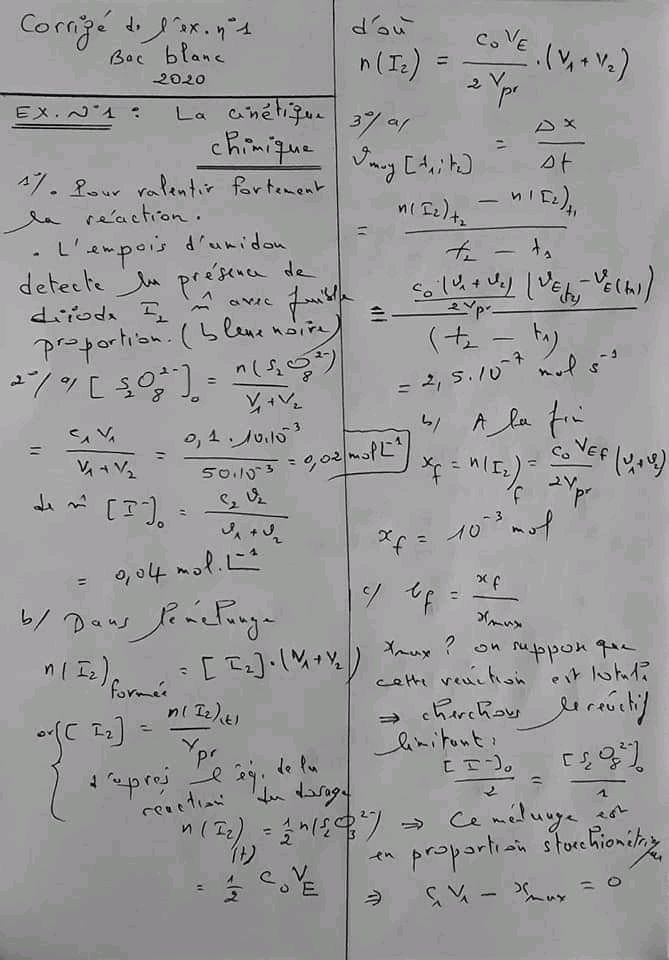 Corrigé de l'ex. n°1
Bac blanc
2020
EX. N°1 : La cinétique
chimique
1°/. Pour ralentir fortement
la réaction.
. L'empois d'amidon
detecte la présence de
diiode I₂ m̂ avec faible
proportion. (bleue noire)
2°/ a/ [S₂O₈²⁻]₀ = n(S₂O₈²⁻) / (V₁+V₂)
= C₁V₁ / (V₁+V₂) = 0,1 . 10.10⁻³ / 50.10⁻³ = 0,02 mol L⁻¹
de m̂ [I⁻]₀ = C₂V₂ / (V₁+V₂)
= 0,04 mol.L⁻¹
b/ Dans le mélange
n(I₂)formée = [I₂].(V₁+V₂)
or [I₂] = n(I₂)(t) / Vpr
d'après l'éq. de la
réaction du dosage
n(I₂)(t) = 1/2 n(S₂O₃²⁻)
= 1/2 C₀VE
d'où
n(I₂) = C₀VE / 2Vpr . (V₁+V₂)
3°/ a/
Vmoy [t₁;t₂] = Δx / Δt
= (n(I₂)t₂ − n(I₂)t₁) / (t₂ − t₁)
= C₀.(V₁+V₂) / 2Vpr (VE(t₂) − VE(t₁)) / (t₂ − t₁)
= 2,5.10⁻⁷ mol s⁻¹
b/ A la fin
xf = n(I₂)f = C₀VEf / 2Vpr (V₁+V₂)
xf = 10⁻³ mol
c/ τf = xf / xmax
xmax ? on suppose que
cette réaction est totale
⇒ cherchons le réactif
limitant :
[I⁻]₀ / 2 = [S₂O₈²⁻]₀ / 1
⇒ Ce mélange est
en proportion stoechiométrique
⇒ C₁V₁ − xmax = 0